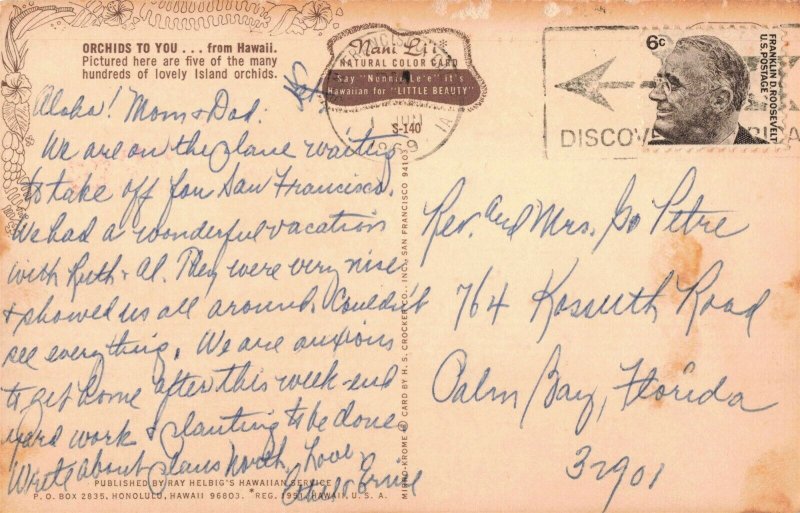 ORCHIDS TO YOU . . . from Hawaii.
Pictured here are five of the many
hundreds of lovely Island orchids.
Nani Li'i
NATURAL COLOR CARD
Say "Nonnie Le'e" it's
Hawaiian for "LITTLE BEAUTY"
S-140
Sat.
Aloha! Mom & Dad:
We are on the plane waiting
to take off for San Francisco.
We had a wonderful vacation
with Ruth & Al. They were very nise
& showed us all around. Couldn't
see everything. We are anxious
to get home after this week-end
yard work & planting to be done
Write about plans North. Love,
Ernie
PUBLISHED BY RAY HELBIG'S HAWAIIAN SERVICE
P. O. BOX 2835, HONOLULU, HAWAII 96803. *REG. 1951, HAWAII, U. S. A.
MIRRO-KROME ® CARD BY H. S. CROCKER CO., INC., SAN FRANCISCO, CALIF. 94103
1969
DISCOVER
6c
FRANKLIN D. ROOSEVELT
U.S. POSTAGE
Rev. and Mrs. Go Petre
764 Kossuth Road
Palm Bay, Florida
32901